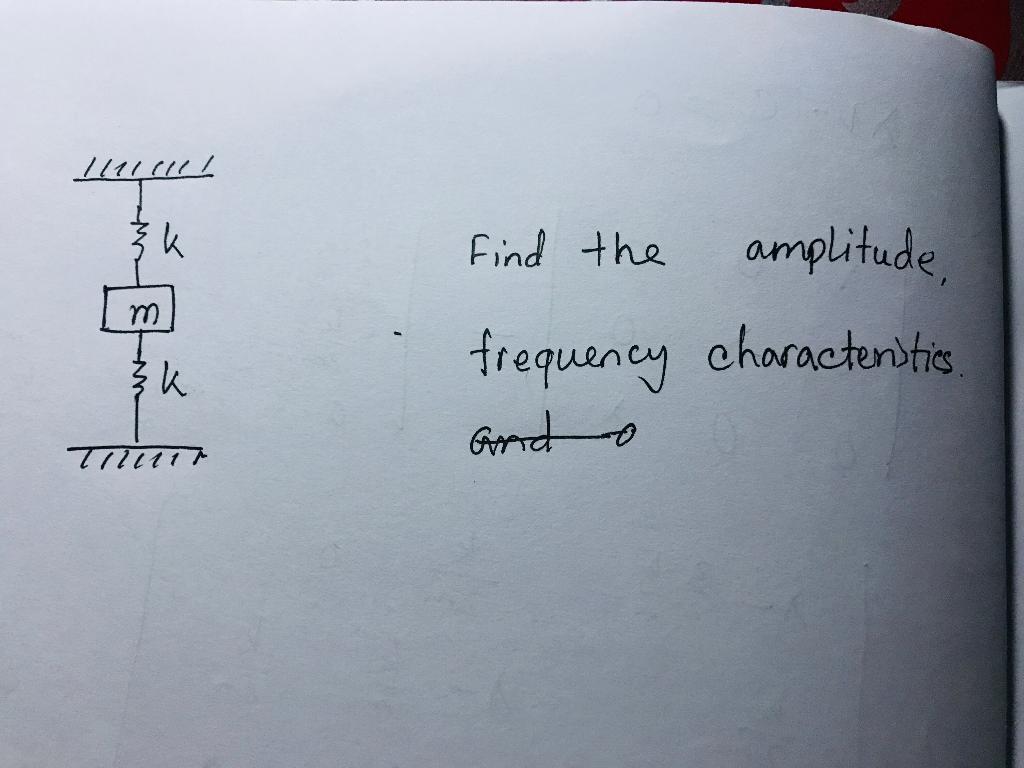 k
m
k
Find the amplitude,
frequency characteristics.